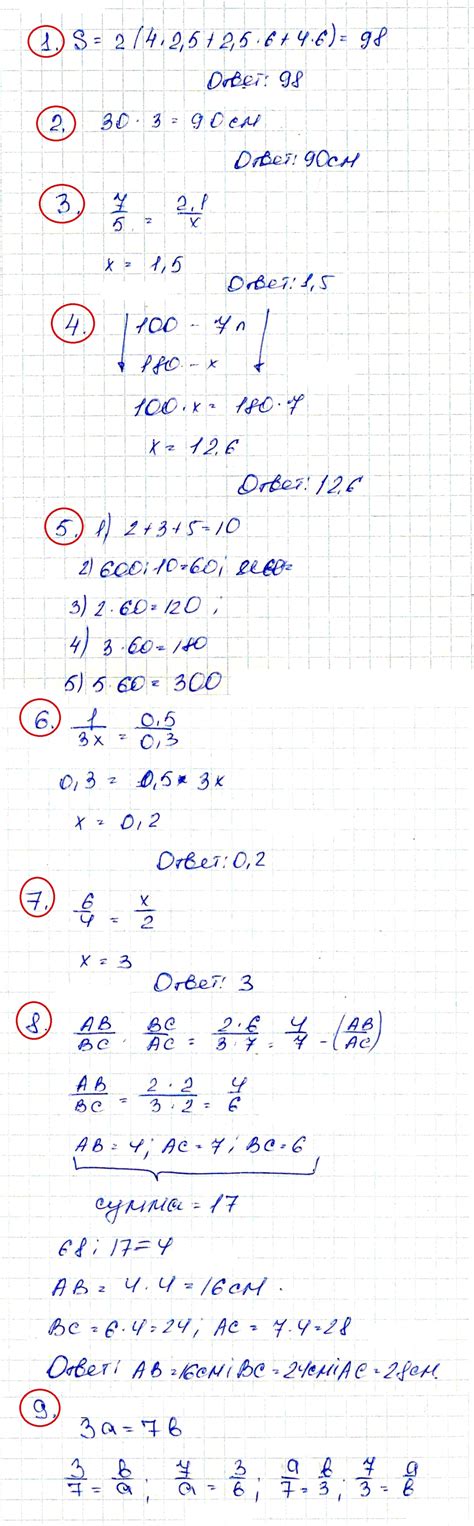 1. S = 2 (4·2,5+2,5·6+4·6) = 98
Ответ: 98
2. 30·3=90см
Ответ: 90см
3. 7/5 = 2,1/x
x = 1,5
Ответ: 1,5
4. 100 – 7л
180 – x
100·x = 180·7
x = 12,6
Ответ: 12,6
5. 1) 2+3+5=10
2) 600:10=60;
3) 2·60=120;
4) 3·60=180
5) 5·60=300
6. 1/3x = 0,5/0,3
0,3 = 0,5· 3x
x = 0,2
Ответ: 0,2
7. 6/4 = x/2
x = 3
Ответ: 3
8. AB/BC · BC/AC = 2·6/3·7 = 4/7 - (AB/AC)
AB/BC = 2·2/3·2 = 4/6
AB=4; AC=7; BC=6
сумма=17
68:17=4
AB = 4·4=16см.
BC=6·4=24; AC = 7·4=28
Ответ: AB=16см; BC=24см; AC=28см.
9.
3a=7b
3/7 = b/a; 7/a = 3/b; a/7 = b/3; 7/3 = a/b